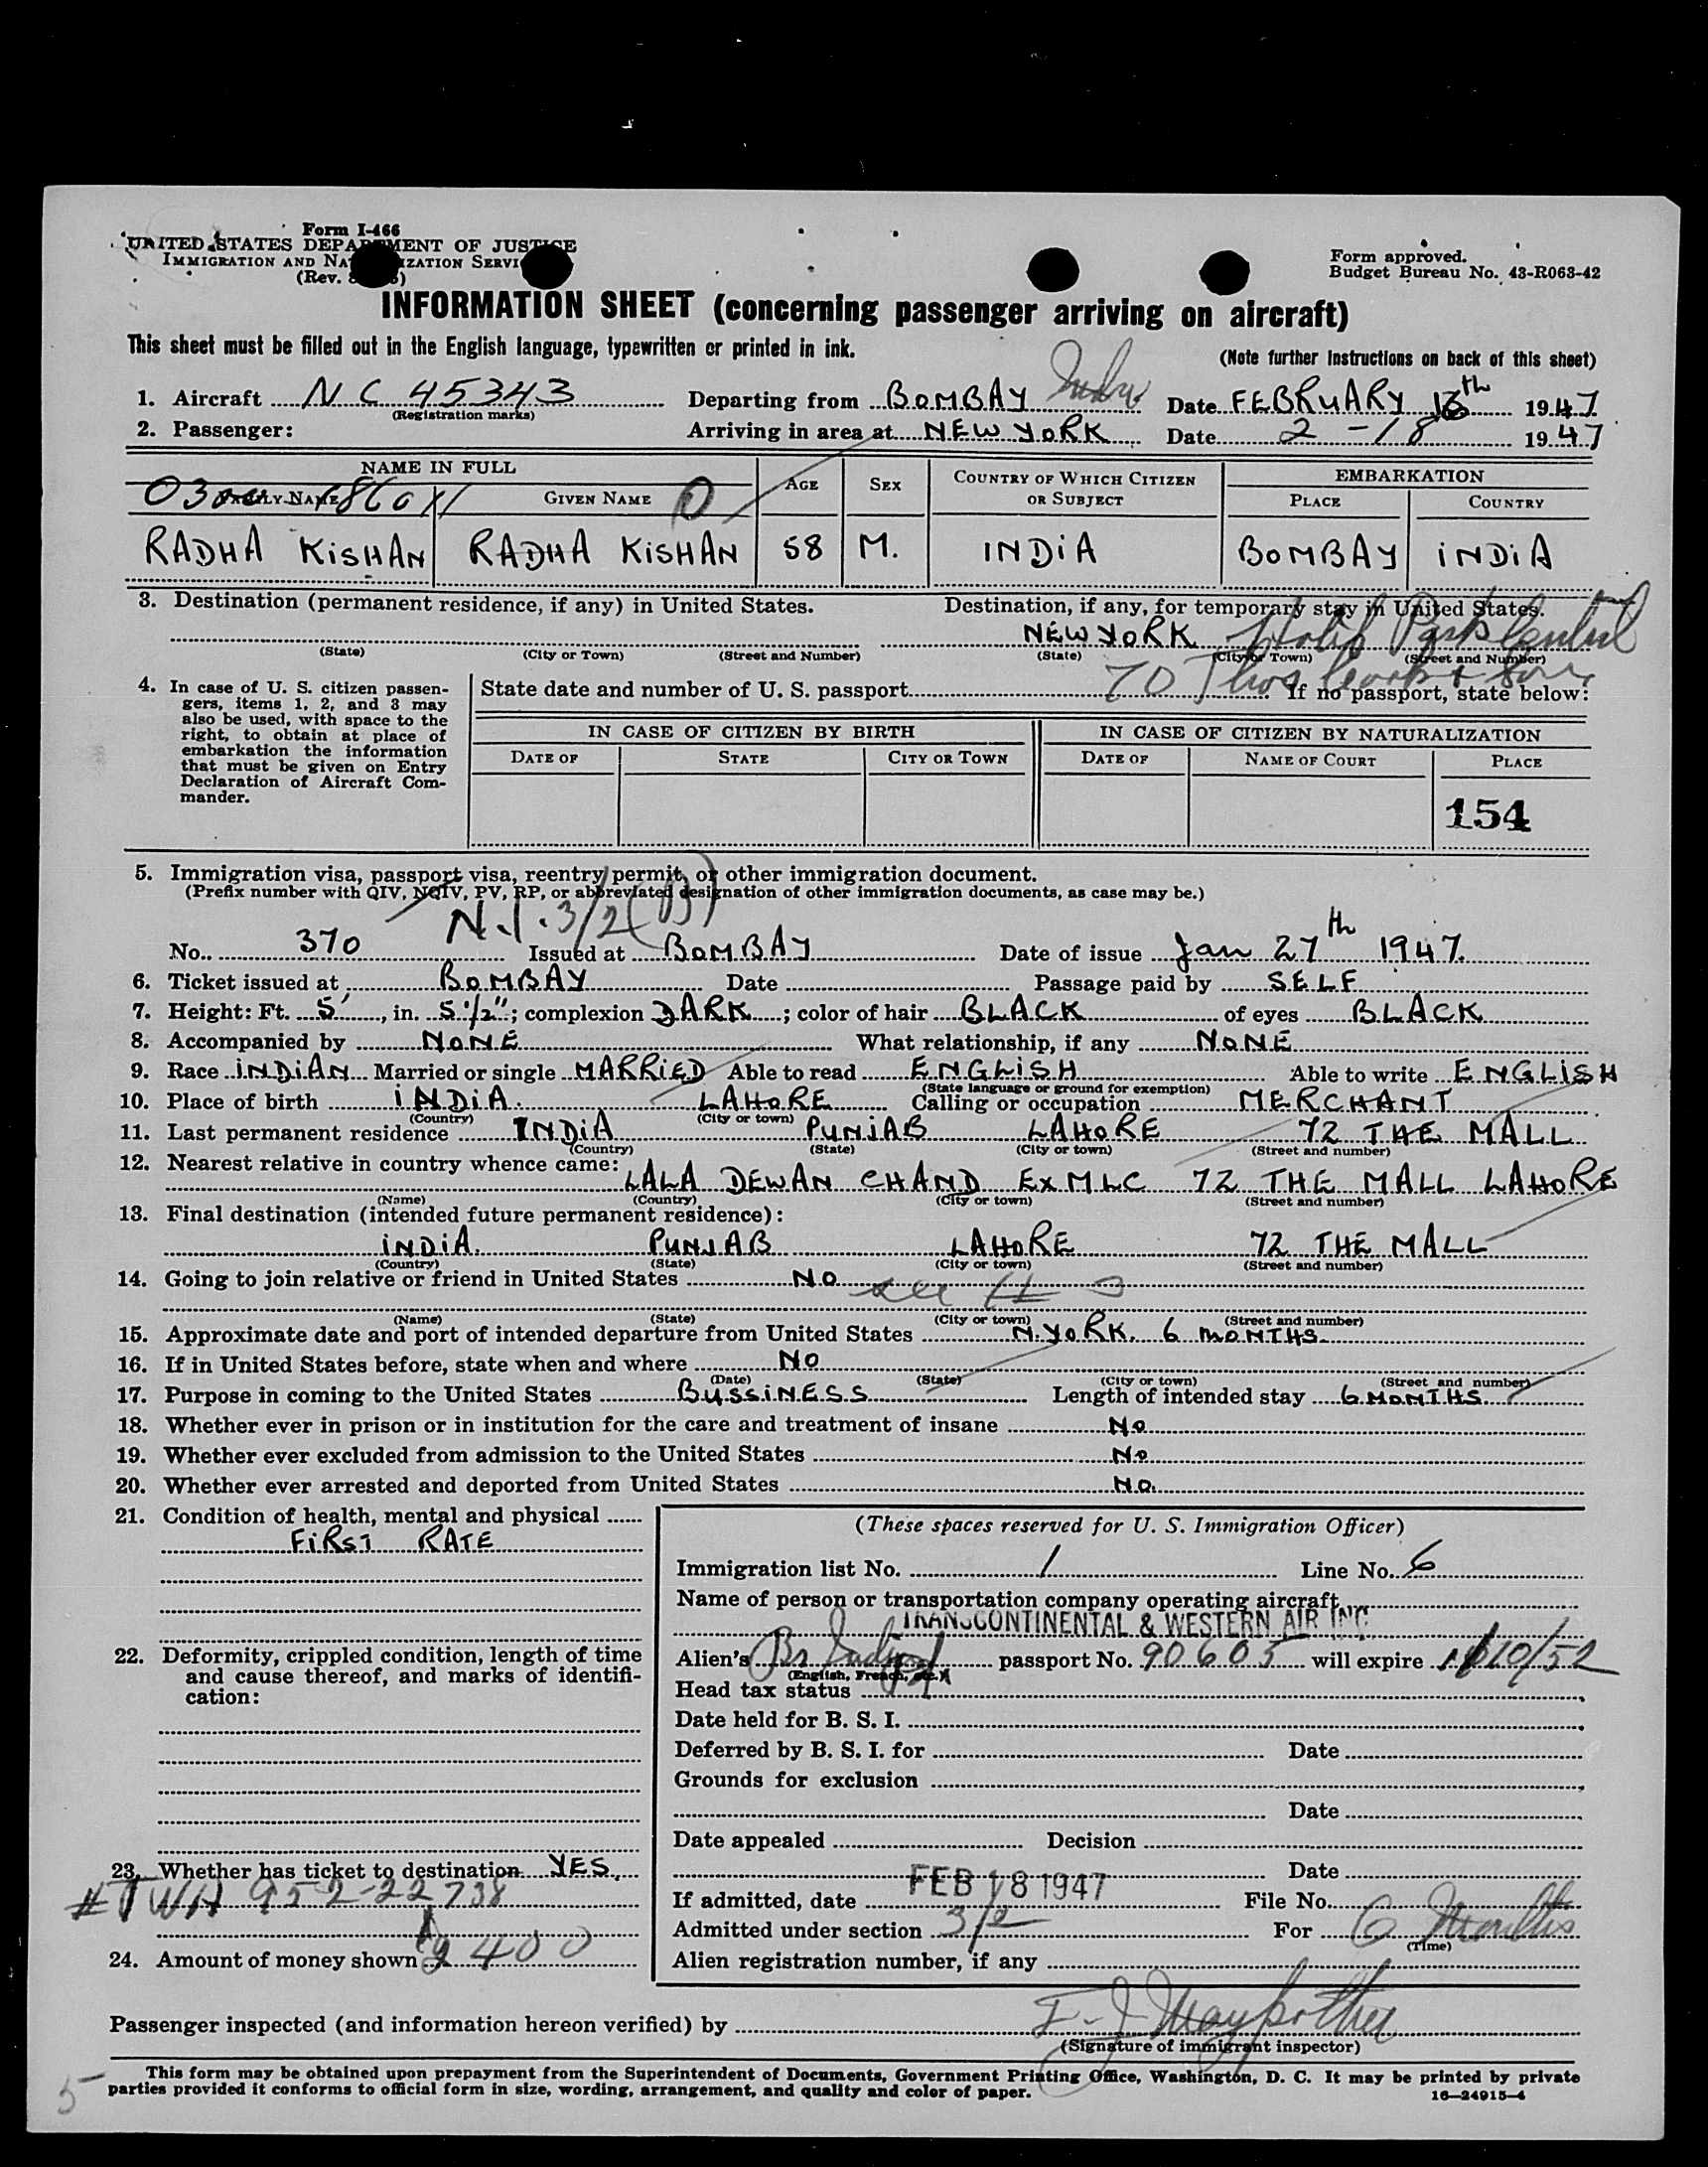 Form I-466
UNITED STATES DEPARTMENT OF JUSTICE
IMMIGRATION AND NATURALIZATION SERVICE
(Rev.
Form approved.
Budget Bureau No. 43-R063-42
INFORMATION SHEET (concerning passenger arriving on aircraft)
This sheet must be filled out in the English language, typewritten or printed in ink.
(Note further instructions on back of this sheet)
1. Aircraft N C 45343 Departing from BOMBAY Date FEBRUARY 13th 1947
(Registration marks)
2. Passenger: Arriving in area at NEW YORK Date 2-18 1947
NAME IN FULL AGE SEX COUNTRY OF WHICH CITIZEN OR SUBJECT EMBARKATION
FAMILY NAME GIVEN NAME PLACE COUNTRY
RADHA KISHAN RADHA KISHAN 58 M. INDIA BOMBAY INDIA
3. Destination (permanent residence, if any) in United States. Destination, if any, for temporary stay in United States.
NEW YORK Hotel Park Central
(State) (City or Town) (Street and Number) (State) (City or Town) (Street and Number)
70 Thos Cook & Son
4. In case of U. S. citizen passengers, items 1, 2, and 3 may also be used, with space to the right, to obtain at place of embarkation the information that must be given on Entry Declaration of Aircraft Commander.
State date and number of U. S. passport If no passport, state below:
IN CASE OF CITIZEN BY BIRTH IN CASE OF CITIZEN BY NATURALIZATION
DATE OF STATE CITY OR TOWN DATE OF NAME OF COURT PLACE
154
5. Immigration visa, passport visa, reentry permit, or other immigration document.
(Prefix number with QIV, NQIV, PV, RP, or abbreviated designation of other immigration documents, as case may be.)
N.I. 3/2 (B)
No. 370 Issued at BOMBAY Date of issue Jan 27th 1947.
6. Ticket issued at BOMBAY Date Passage paid by SELF
7. Height: Ft. 5', in. 5 1/2"; complexion DARK; color of hair BLACK of eyes BLACK
8. Accompanied by NONE What relationship, if any NONE
9. Race INDIAN Married or single MARRIED Able to read ENGLISH Able to write ENGLISH
(State language or ground for exemption)
10. Place of birth INDIA. LAHORE Calling or occupation MERCHANT
(Country) (City or town)
11. Last permanent residence INDIA PUNJAB LAHORE 72 THE MALL
(Country) (State) (City or town) (Street and number)
12. Nearest relative in country whence came:
LALA DEWAN CHAND EX MLC 72 THE MALL LAHORE
(Name) (Country) (City or town) (Street and number)
13. Final destination (intended future permanent residence):
INDIA. PUNJAB LAHORE 72 THE MALL
(Country) (State) (City or town) (Street and number)
14. Going to join relative or friend in United States NO see # 3
(Name) (State) (City or town) (Street and number)
15. Approximate date and port of intended departure from United States N. YORK. 6 MONTHS
16. If in United States before, state when and where NO
(Date) (State) (City or town) (Street and number)
17. Purpose in coming to the United States BUSSINESS Length of intended stay 6 MONTHS
18. Whether ever in prison or in institution for the care and treatment of insane No
19. Whether ever excluded from admission to the United States No
20. Whether ever arrested and deported from United States NO.
21. Condition of health, mental and physical
FIRST RATE
22. Deformity, crippled condition, length of time and cause thereof, and marks of identification:
23. Whether has ticket to destination YES
# TWA 952-22738
24. Amount of money shown $400
(These spaces reserved for U. S. Immigration Officer)
Immigration list No. 1 Line No. 6
Name of person or transportation company operating aircraft
TRANSCONTINENTAL & WESTERN AIR INC
Alien's Br Indian passport No. 90605 will expire 1/10/52
(English, French, etc.)
Head tax status
Date held for B. S. I.
Deferred by B. S. I. for Date
Grounds for exclusion
Date
Date appealed Decision
Date
If admitted, date FEB 18 1947 File No.
Admitted under section 3/2 For 6 Months
(Time)
Alien registration number, if any
Passenger inspected (and information hereon verified) by
(Signature of immigrant inspector)
This form may be obtained upon prepayment from the Superintendent of Documents, Government Printing Office, Washington, D. C. It may be printed by private
parties provided it conforms to official form in size, wording, arrangement, and quality and color of paper.
16—24915-4
5